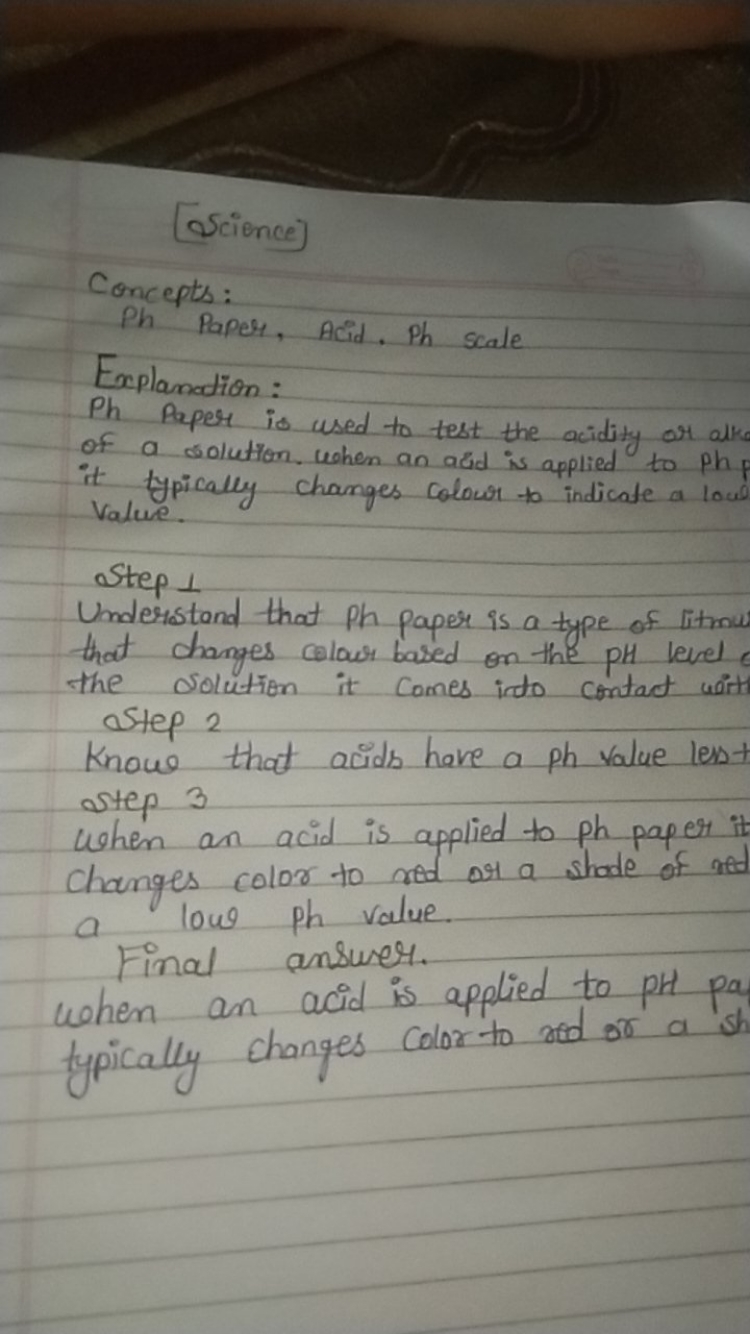 [Science]
Concepts:
Ph Paper, Acid, Ph scale
Explanation:
Ph Paper is used to test the acidity or alka
of a solution. when an acid is applied to Ph p
it typically changes colour to indicate a low
Value.
Step 1
Understand that Ph paper is a type of litmu
that changes colour based on the pH level o
the solution it comes into contact with
Step 2
Know that acids have a ph value less t
Step 3
when an acid is applied to ph paper it
changes color to red or a shade of red
a low ph value.
Final answer.
when an acid is applied to pH pa
typically changes color to red or a sh